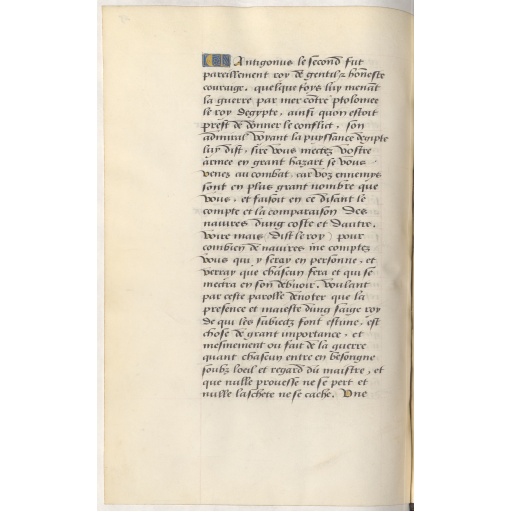 Antigonus le second fut
pareillement roy de gentil & honneste
couraige. quelque foys luy menant
la guerre par mer contre ptolomee
le roy degypte, ainsi quon estoit
prest de donner le conflict, son
admiral voyant la puyssance degipte
luy dist, sire vous mectez vostre
armee en grant hazart se vous
venez au combat, car voz ennemys
sont en plus grant nombre que
vous, et faisoit en ce disant le
compte et la comparaison des
navires dung coste et dautre,
voire mais (dist le roy) pour
combien de navires me comptez
vous qui y seray en personne, et
verray que chascun fera et qui se
mectra en son debuoir, voulant
par ceste parolle denoter que la
presence et maieste dung saige roy
de qui les subiectz font estime, est
chose de grant importance, et
mesmement ou fait de la guerre
quant chascun entre en besongne
soubz loeil et regard du maistre, et
que nulle prouesse ne se pert et
nulle laschete ne se cache. Une